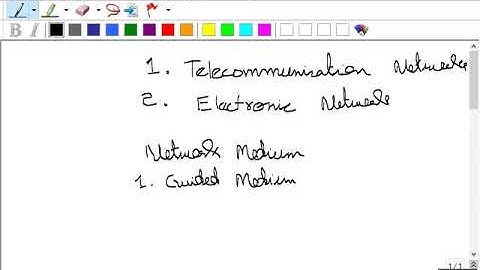 B I
1. Telecommunication Networks
2. Electronic Networks
Network Medium
1. Guided Medium
1/1